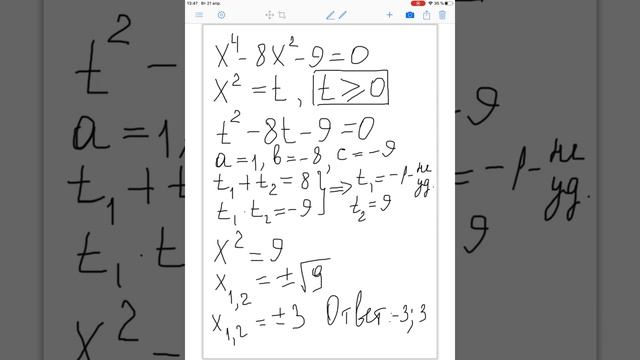 13:47 Вт 21 апр.
35 %
x⁴ - 8x² - 9 = 0
x² = t, t ≥ 0
t² - 8t - 9 = 0
a = 1, b = -8, c = -9
t₁ + t₂ = 8
t₁ · t₂ = -9
⟹ t₁ = -1 - не уд.
t₂ = 9
x² = 9
x₁,₂ = ±√9
x₁,₂ = ±3 Ответ: -3; 3